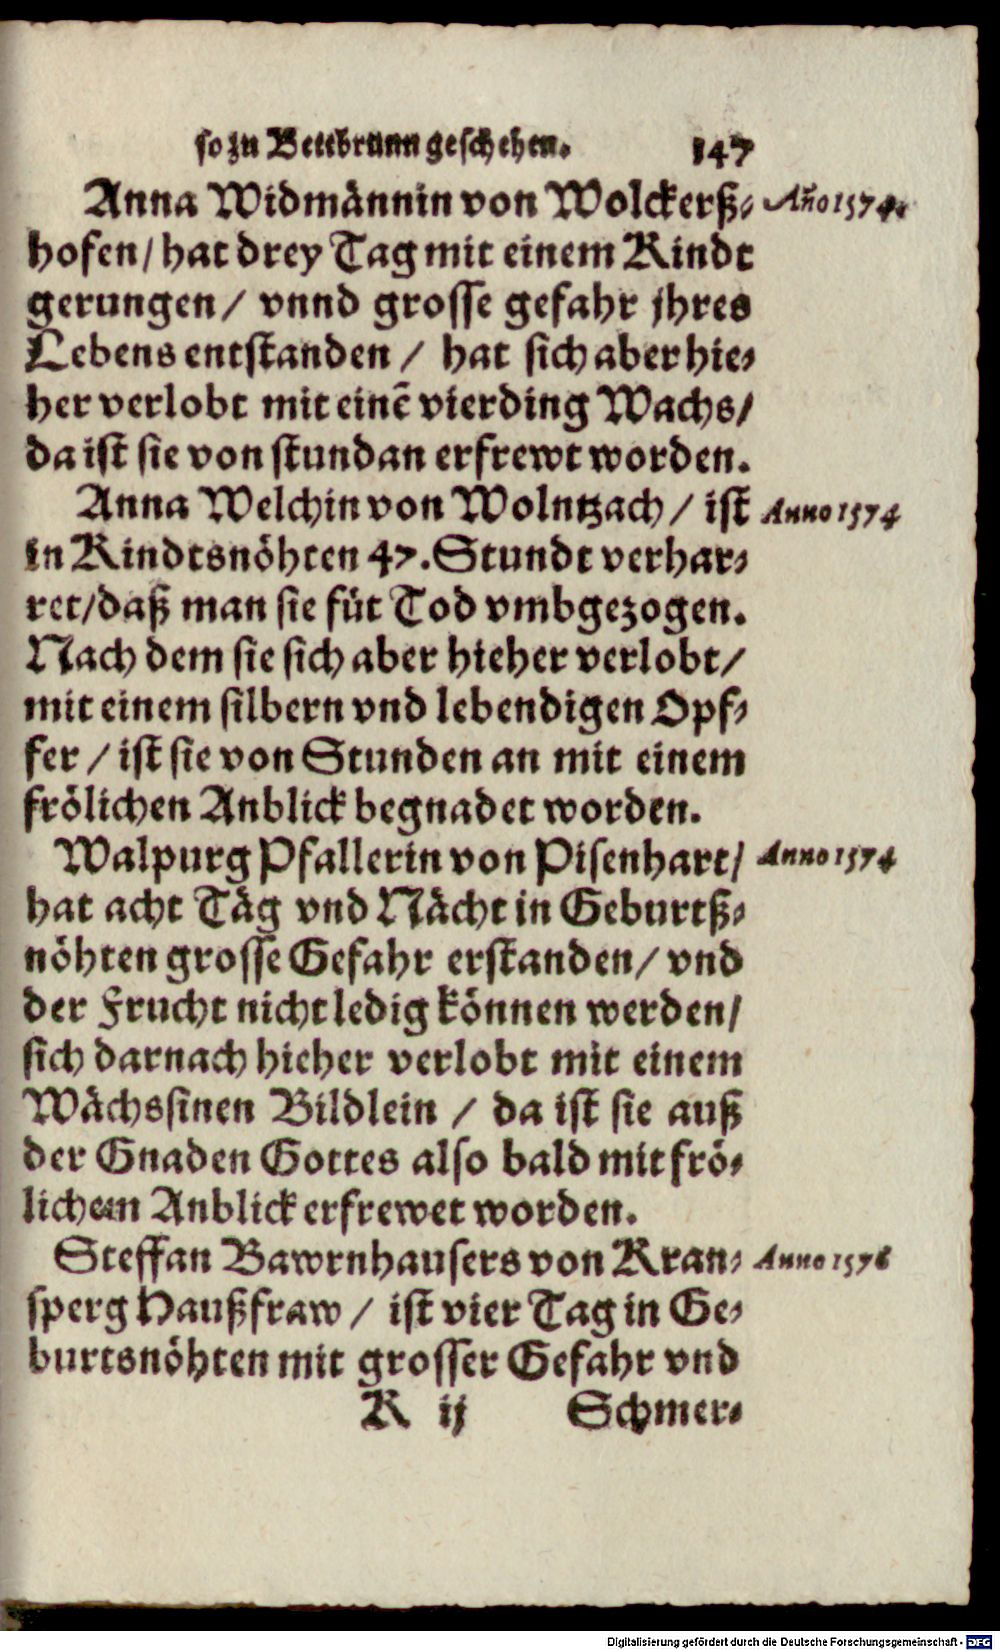 so zu Bettbrunn geschehen. 147
Anna Widmännin von Wolckerß- Año 1574.
hofen / hat drey Tag mit einem Kindt
gerungen / vnnd grosse gefahr jhres
Lebens entstanden / hat sich aber hie-
her verlobt mit einē vierding Wachs /
da ist sie von stundan erfrewt worden.
Anna Welchin von Wolntzach / ist Anno 1574
in Kindtsnöhten 47. Stundt verhar-
ret / daß man sie füt Tod vmbgezogen.
Nach dem sie sich aber hieher verlobt /
mit einem silbern vnd lebendigen Opf-
fer / ist sie von Stunden an mit einem
frölichen Anblick begnadet worden.
Walpurg Pfallerin von Pisenhart / Anno 1574
hat acht Täg vnd Nächt in Geburtß-
nöhten grosse Gefahr erstanden / vnd
der Frucht nicht ledig können werden /
sich darnach hieher verlobt mit einem
Wächssinen Bildlein / da ist sie auß
der Gnaden Gottes also bald mit frö-
lichem Anblick erfrewet worden.
Steffan Bawrnhausers von Kran- Anno 1576
sperg Haußfraw / ist vier Tag in Ge-
burtsnöhten mit grosser Gefahr vnd
K ij Schmer-
Digitalisierung gefördert durch die Deutsche Forschungsgemeinschaft - DFG